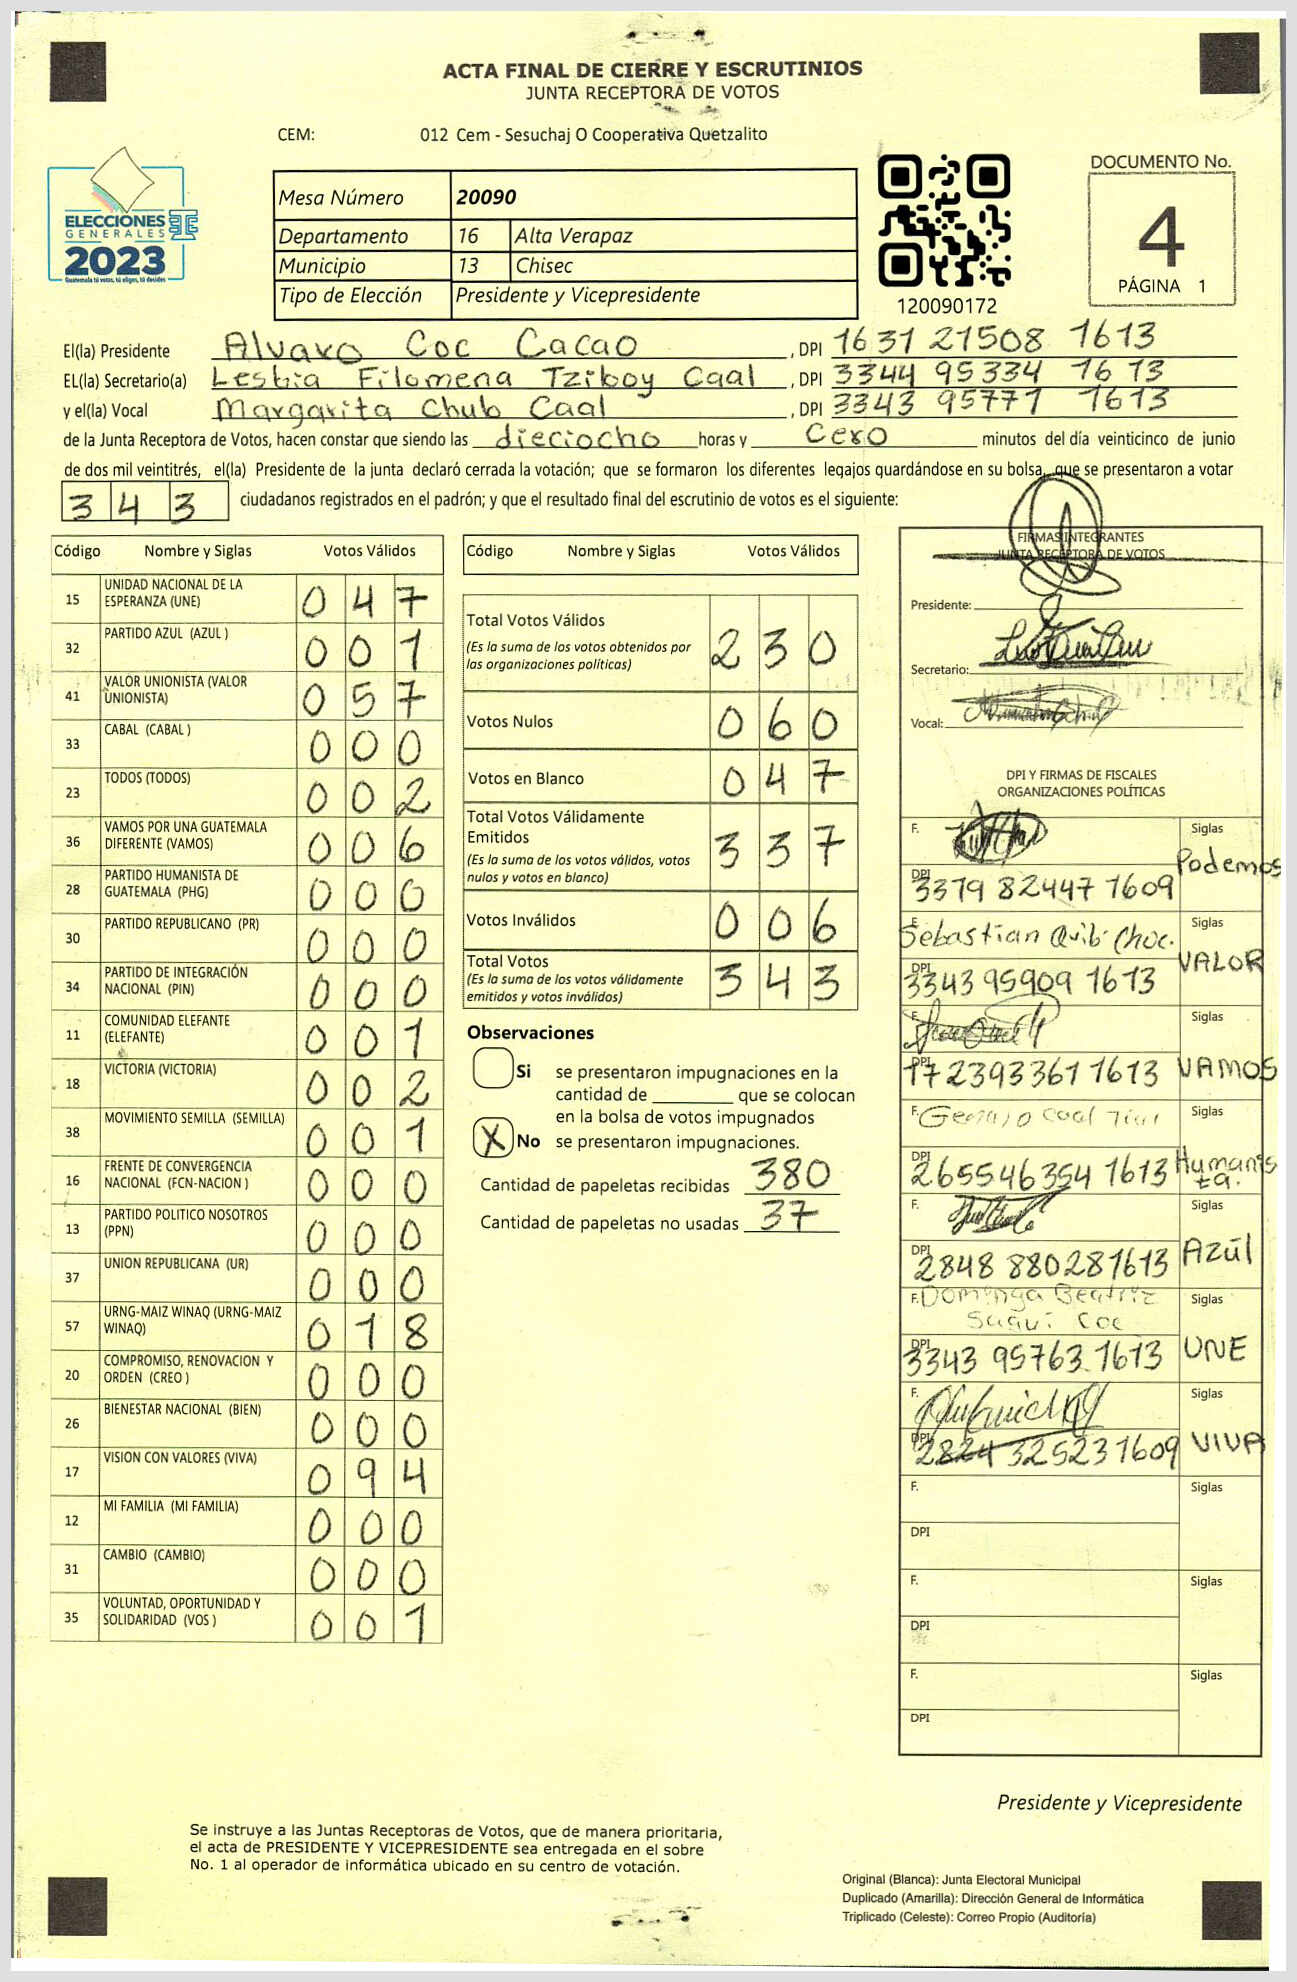 ACTA FINAL DE CIERRE Y ESCRUTINIOS
JUNTA RECEPTORA DE VOTOS
CEM: 012 Cem - Sesuchaj O Cooperativa Quetzalito
ELECCIONES
GENERALES
2023
Guatemala tú votas, tú eliges, tú decides
Mesa Número 20090
Departamento 16 Alta Verapaz
Municipio 13 Chisec
Tipo de Elección Presidente y Vicepresidente
120090172
DOCUMENTO No.
4
PÁGINA 1
El(la) Presidente Alvaro Coc Cacao , DPI 1631 21508 1613
EL(la) Secretario(a) Lesbia Filomena Tziboy Caal , DPI 3344 95334 1613
y el(la) Vocal Margarita Chub Caal , DPI 3343 95771 1613
de la Junta Receptora de Votos, hacen constar que siendo las dieciocho horas y Cero minutos del día veinticinco de junio
de dos mil veintitrés, el(la) Presidente de la junta declaró cerrada la votación; que se formaron los diferentes legajos guardándose en su bolsa, que se presentaron a votar
343 ciudadanos registrados en el padrón; y que el resultado final del escrutinio de votos es el siguiente:
Código Nombre y Siglas Votos Válidos
15 UNIDAD NACIONAL DE LA ESPERANZA (UNE) 047
32 PARTIDO AZUL (AZUL ) 001
41 VALOR UNIONISTA (VALOR UNIONISTA) 057
33 CABAL (CABAL ) 000
23 TODOS (TODOS) 002
36 VAMOS POR UNA GUATEMALA DIFERENTE (VAMOS) 006
28 PARTIDO HUMANISTA DE GUATEMALA (PHG) 000
30 PARTIDO REPUBLICANO (PR) 000
34 PARTIDO DE INTEGRACIÓN NACIONAL (PIN) 000
11 COMUNIDAD ELEFANTE (ELEFANTE) 001
18 VICTORIA (VICTORIA) 002
38 MOVIMIENTO SEMILLA (SEMILLA) 001
16 FRENTE DE CONVERGENCIA NACIONAL (FCN-NACION ) 000
13 PARTIDO POLITICO NOSOTROS (PPN) 000
37 UNION REPUBLICANA (UR) 000
57 URNG-MAIZ WINAQ (URNG-MAIZ WINAQ) 018
20 COMPROMISO, RENOVACION Y ORDEN (CREO ) 000
26 BIENESTAR NACIONAL (BIEN) 000
17 VISION CON VALORES (VIVA) 094
12 MI FAMILIA (MI FAMILIA) 000
31 CAMBIO (CAMBIO) 000
35 VOLUNTAD, OPORTUNIDAD Y SOLIDARIDAD (VOS ) 001
Código Nombre y Siglas Votos Válidos
Total Votos Válidos 230
(Es la suma de los votos obtenidos por
las organizaciones políticas)
Votos Nulos 060
Votos en Blanco 047
Total Votos Válidamente
Emitidos 337
(Es la suma de los votos válidos, votos
nulos y votos en blanco)
Votos Inválidos 006
Total Votos 343
(Es la suma de los votos válidamente
emitidos y votos inválidos)
Observaciones
Si se presentaron impugnaciones en la
cantidad de ________ que se colocan
en la bolsa de votos impugnados
X No se presentaron impugnaciones.
Cantidad de papeletas recibidas 380
Cantidad de papeletas no usadas 37
FIRMAS INTEGRANTES
JUNTA RECEPTORA DE VOTOS
Presidente:
Secretario:
Vocal:
DPI Y FIRMAS DE FISCALES
ORGANIZACIONES POLÍTICAS
F. Siglas Podemos
DPI 3379 82447 1609
F. Sebastian Quib Choc. Siglas VALOR
DPI 3343 95909 1613
F. Siglas VAMOS
DPI 1723933611613
F. Siglas Humanista.
DPI 265546354 1613
F. Siglas Azúl
DPI 2848 880281613
F. Dominga Beatriz Saqui Coc Siglas UNE
DPI 3343 95763 1613
F. Siglas VIVA
DPI 2824 325231609
F. Siglas
DPI
F. Siglas
DPI
F. Siglas
DPI
Presidente y Vicepresidente
Se instruye a las Juntas Receptoras de Votos, que de manera prioritaria,
el acta de PRESIDENTE Y VICEPRESIDENTE sea entregada en el sobre
No. 1 al operador de informática ubicado en su centro de votación.
Original (Blanca): Junta Electoral Municipal
Duplicado (Amarilla): Dirección General de Informática
Triplicado (Celeste): Correo Propio (Auditoría)